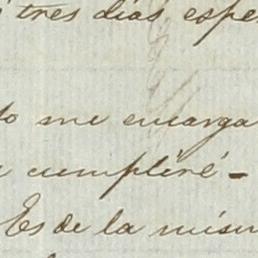 tres días espe
me encarga
cumpliré -
Es de la mism